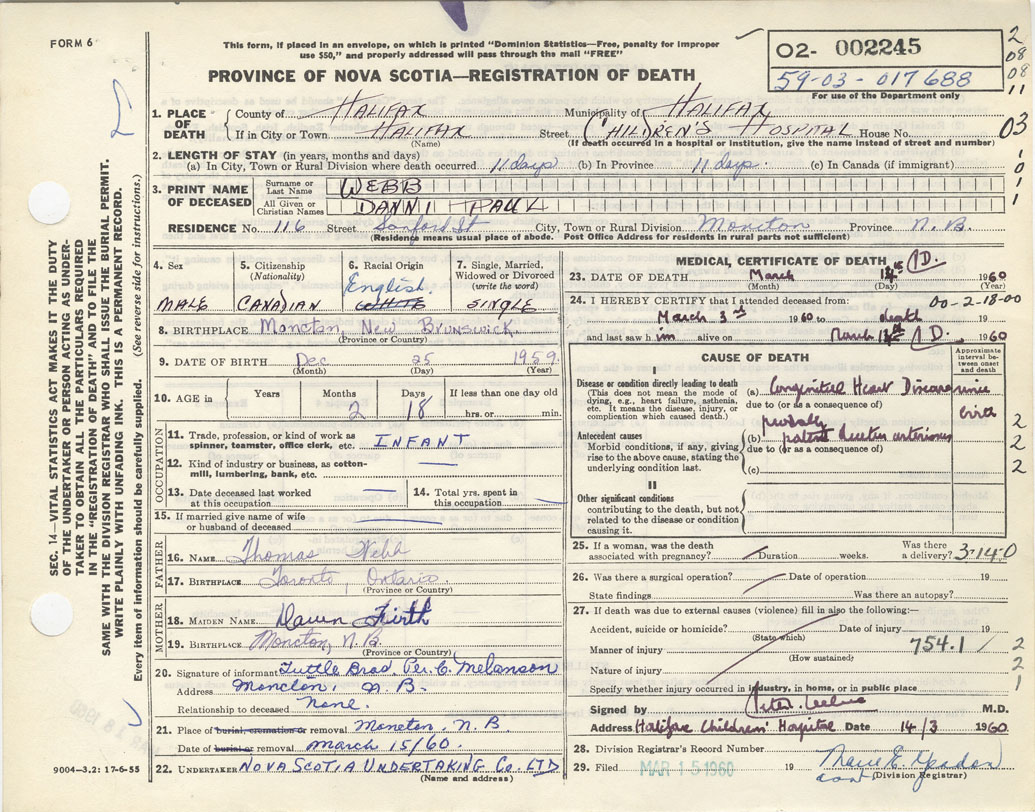 FORM 6
This form, if placed in an envelope, on which is printed "Dominion Statistics—Free, penalty for improper
use $50," and properly addressed will pass through the mail "FREE"
PROVINCE OF NOVA SCOTIA—REGISTRATION OF DEATH
O2- 002245
59-03-017688
For use of the Department only
2
08
08
11
03
1
0
1
1
1. PLACE OF DEATH
County of HALIFAX Municipality of HALIFAX
If in City or Town HALIFAX Street CHILDREN'S HOSPITAL House No.
(Name) (If death occurred in a hospital or institution, give the name instead of street and number)
2. LENGTH OF STAY (in years, months and days)
(a) In City, Town or Rural Division where death occurred 11 days (b) In Province 11 days. (c) In Canada (if immigrant)
3. PRINT NAME OF DECEASED
Surname or Last Name WEBB
All Given or Christian Names DANNI PAUL
RESIDENCE No. 116 Street Sanford St City, Town or Rural Division Moncton Province N.B.
(Residence means usual place of abode. Post Office Address for residents in rural parts not sufficient)
4. Sex
MALE
5. Citizenship (Nationality)
CANADIAN
6. Racial Origin
English
WHITE
7. Single, Married, Widowed or Divorced (write the word)
SINGLE
8. BIRTHPLACE Moncton, New Brunswick
(Province or Country)
9. DATE OF BIRTH Dec 25 1959
(Month) (Day) (Year)
10. AGE in Years Months Days If less than one day
2 18 hrs. or min.
OCCUPATION
11. Trade, profession, or kind of work as spinner, teamster, office clerk, etc. INFANT
12. Kind of industry or business, as cotton-mill, lumbering, bank, etc.
13. Date deceased last worked at this occupation
14. Total yrs. spent in this occupation
15. If married give name of wife or husband of deceased
FATHER
16. NAME Thomas Webb
17. BIRTHPLACE Toronto, Ontario
(Province or Country)
MOTHER
18. MAIDEN NAME Dawn Firth
19. BIRTHPLACE Moncton, N.B.
(Province or Country)
20. Signature of informant Tuttle Bros. Per. C. Melanson
Address Moncton, N.B.
Relationship to deceased None.
21. Place of burial, cremation or removal Moncton, N.B
Date of burial or removal March 15/60.
22. UNDERTAKER NOVA SCOTIA UNDERTAKING CO. LTD
(Name and address)
MEDICAL CERTIFICATE OF DEATH
23. DATE OF DEATH March 1960
(Month) (Day) (Year)
24. I HEREBY CERTIFY that I attended deceased from: 00-2-18-00
March 3rd 1960 to death
and last saw him alive on March 1960
CAUSE OF DEATH
Approximate interval between onset and death
I
Disease or condition directly leading to death
(This does not mean the mode of dying, e.g., heart failure, asthenia, etc. It means the disease, injury, or complication which caused death.)
(a) Congenital Heart Disease since birth
due to (or as a consequence of)
Antecedent causes
Morbid conditions, if any, giving rise to the above cause, stating the underlying condition last.
probably
(b) patent ductus arteriosus
due to (or as a consequence of)
(c)
2
2
2
II
Other significant conditions
contributing to the death, but not related to the disease or condition causing it.
25. If a woman, was the death associated with pregnancy? Duration weeks. Was there a delivery? 3-14-0
26. Was there a surgical operation? Date of operation 19
State findings Was there an autopsy?
27. If death was due to external causes (violence) fill in also the following:—
Accident, suicide or homicide? Date of injury 19
(State which)
Manner of injury 754.1 2
(How sustained)
Nature of injury 2
Specify whether injury occurred in industry, in home, or in public place 1
Signed by M.D.
Address Halifax Children's Hospital Date 14/3 1960
28. Division Registrar's Record Number
29. Filed MAR 15 1960 19
(Division Registrar)
9004—3.2: 17-6-55
SEC. 14—VITAL STATISTICS ACT MAKES IT THE DUTY
OF THE UNDERTAKER OR PERSON ACTING AS UNDER-
TAKER TO OBTAIN ALL THE PARTICULARS REQUIRED
IN THE "REGISTRATION OF DEATH" AND TO FILE THE
SAME WITH THE DIVISION REGISTRAR WHO SHALL ISSUE THE BURIAL PERMIT.
WRITE PLAINLY WITH UNFADING INK. THIS IS A PERMANENT RECORD.
Every item of information should be carefully supplied. (See reverse side for instructions.)